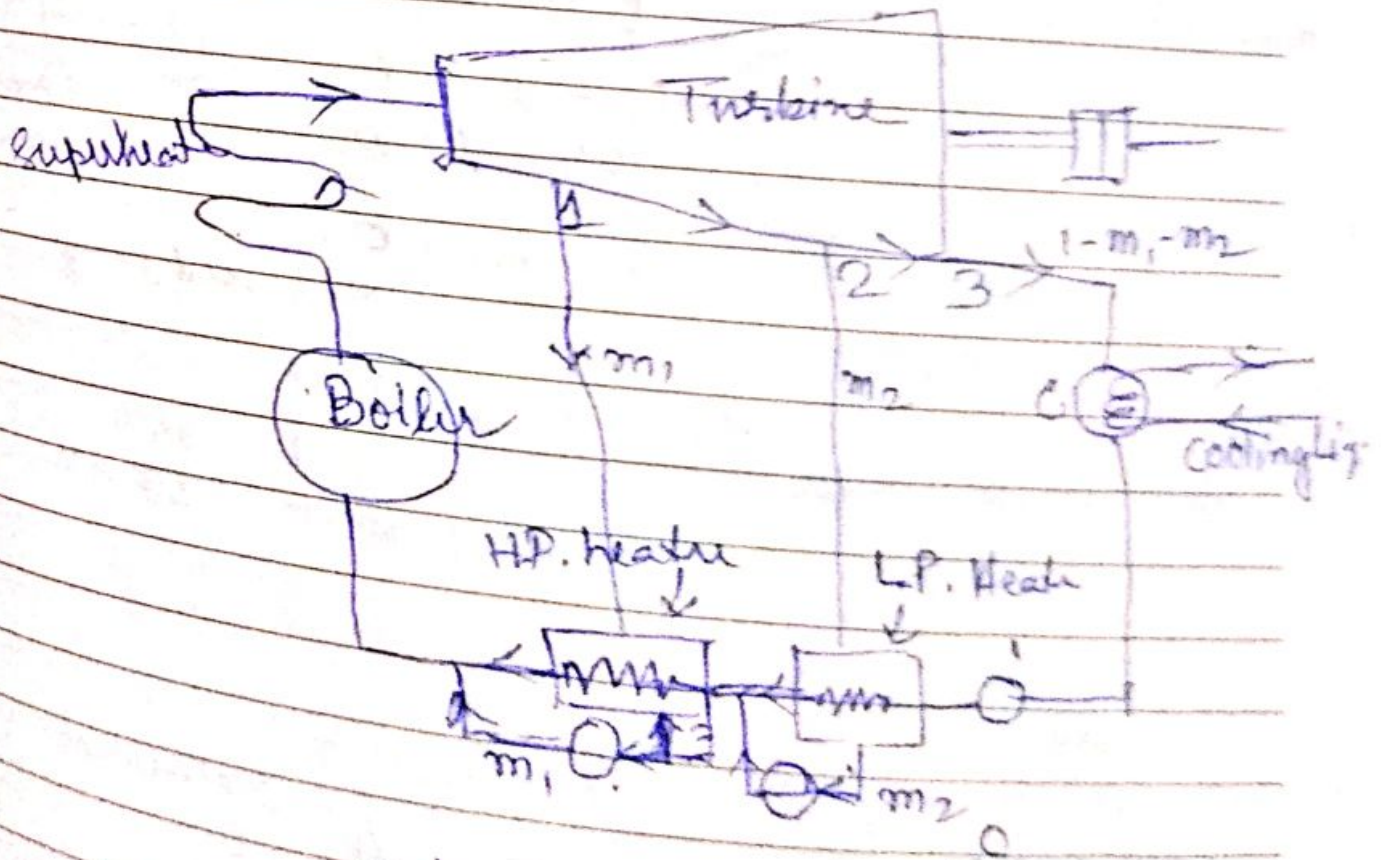 Turbine
superheat
1
2
3
1-m₁-m₂
m₁
m₂
Boiler
C
cooling
H.P. heatre
L.P. Heat
m₁
m₂